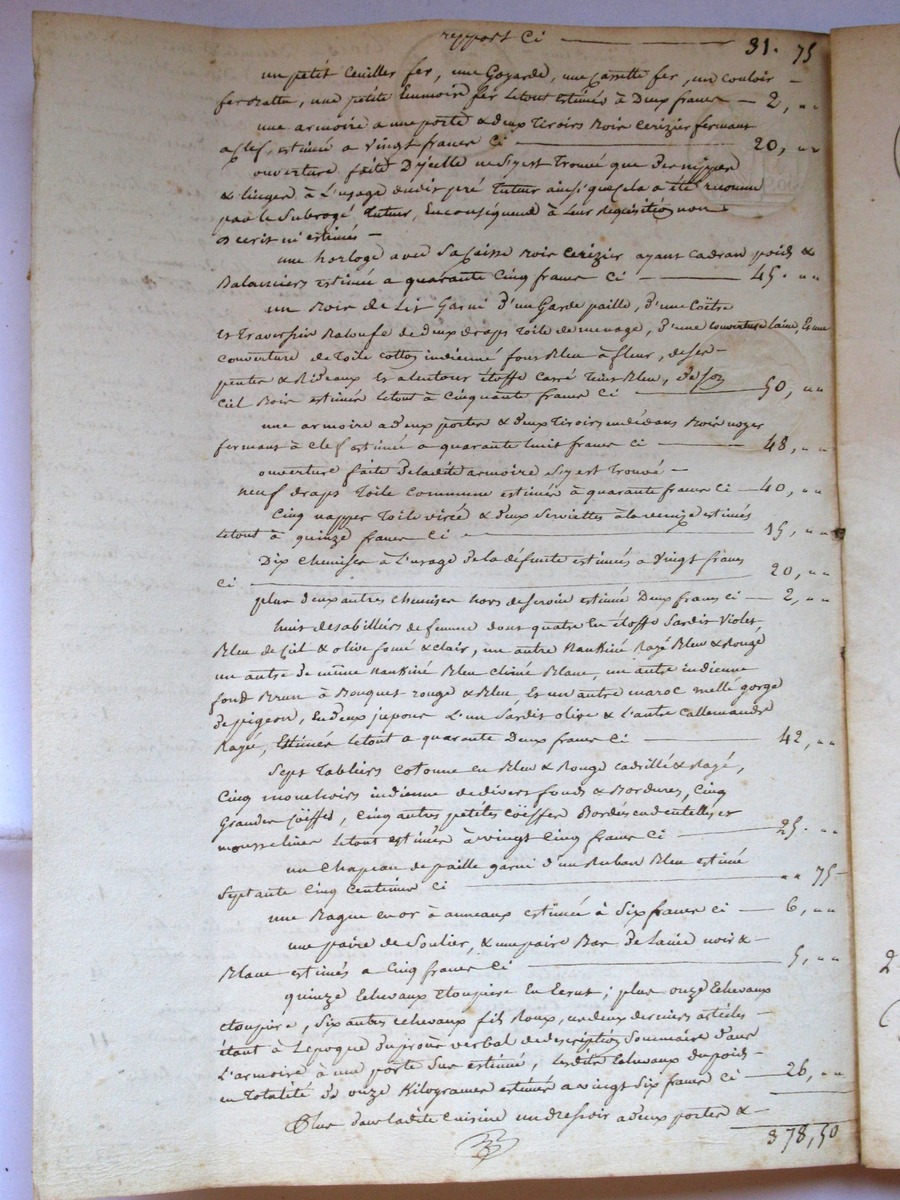 rapport Ci — 31. 75
un petit Cuiller fer, une Goyarde, une Cassette fer, un Couloir
fer Batte, une petite fer le tout estimés à Deux francs — 2, ,,
une armoire a une porte & deux Tiroirs Bois Cerizier fermant
a Clef, estimé a vingt francs Ci — 20, ,,
ouverture faite D'icelle ne s'y est Trouvé que des nippes
& linges à L'usage dudit pré Tuteur ainsi que cela a été reconnu
par le Subrogé Tuteur, En conséquence à Leur Requisition non
Decrit ni estimés —
une horloge avec Sa Caisse Bois Cerizier ayant Cadran poids &
Balanciers estimée a quarante Cinq francs Ci — 45. ,,
un Bois de Lit Garni d'un Garde paille, d'une Coëtre
et Traversin Baloufe de deux draps Toile de menage, d'une Couverture laine, Et une
Couverture de Toile Cotton indienne fond Bleu à fleur, de Ser-
pentes & Rideaux Et alentours étoffe Carré Teint Bleu, de Son
Ciel Bois estimés letout à Cinquante francs Ci — 50, ,,
une armoire a deux portes & deux Tiroirs en dedans Bois noyer
fermant à Clef estimée a quarante huit francs Ci — 48, ,,
ouverture faite de ladite armoire S'y est Trouvé —
neuf draps Toile Commune estimés à quarante francs Ci — 40, ,,
Cinq nappes Toile & deux Serviettes à la venize estimés
letout à quinze francs Ci — 15, ,,
Dix Chemises à L'usage de la défunte estimées à vingt francs
Ci — 20, ,,
plus deux autres Chemises hors de Servir estimée Deux francs Ci — 2, ,,
huit desabilliers de femme dont quatre En étoffe Sardis Violet
Bleu de Ciel & olive foncé & clair, un autre Nankiné Rayé Bleu & Rouge
un autre de même Nankiné Bleu Chiné Blanc, un autre indienne
fond Brun à Bouquet rouge & Bleu Et un autre maroc mellé gorge
de pigeon, En deux jupons L'un Sardis olive & L'autre Callemandre
Rayée, Estimés letout a quarante Deux francs Ci — 42, ,,
Sept Tabliers Cotonne en Bleu & Rouge Cadrillé & Rayé,
Cinq mouchoirs indienne de divers fonds & Bordures, Cinq
Grandes Coëffes, Cinq autres petites Coëffes Bordés en dentelles et
mousselines letout estimés à vingt Cinq francs Ci — 25. ,,
un Chapeau de paille garni d'un Ruban Bleu estimé
Septante Cinq Centimes Ci — ,, 75
une Bague en or à anneaux estimée à Six francs Ci — 6, ,,
une paire de Soulier, & une paire Bas de Laine noir &
Blanc estimés a Cinq francs Ci — 5, ,,
quinze Echevaux Etoupiere En Ecrus ; plus onze Echevaux
étoupire, Six autres echevaux fils Roux, ces deux derniers articles
étant à L'epoque du procès verbal de description Sommaire dans
L'armoire à une porte Sus estimé, Lesdits Echevaux du poids
en Totalité de onze Kilogrames estimés a vingt Six francs Ci — 26, ,,
Plus dans ladite Cuisine un dressoir a deux portes &
378,50